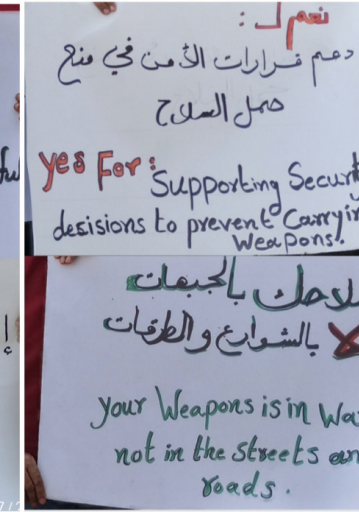 نعم لـ :
دعم قرارات الأمن في منح
حمل السلاح
yes For :
Supporting Securit
desisions to prevent Carryin
Weapons.
لاحك بالجبهات
لا بالشوارع والطرقات
your Weapons is in Wa
not in the streets an
roads .